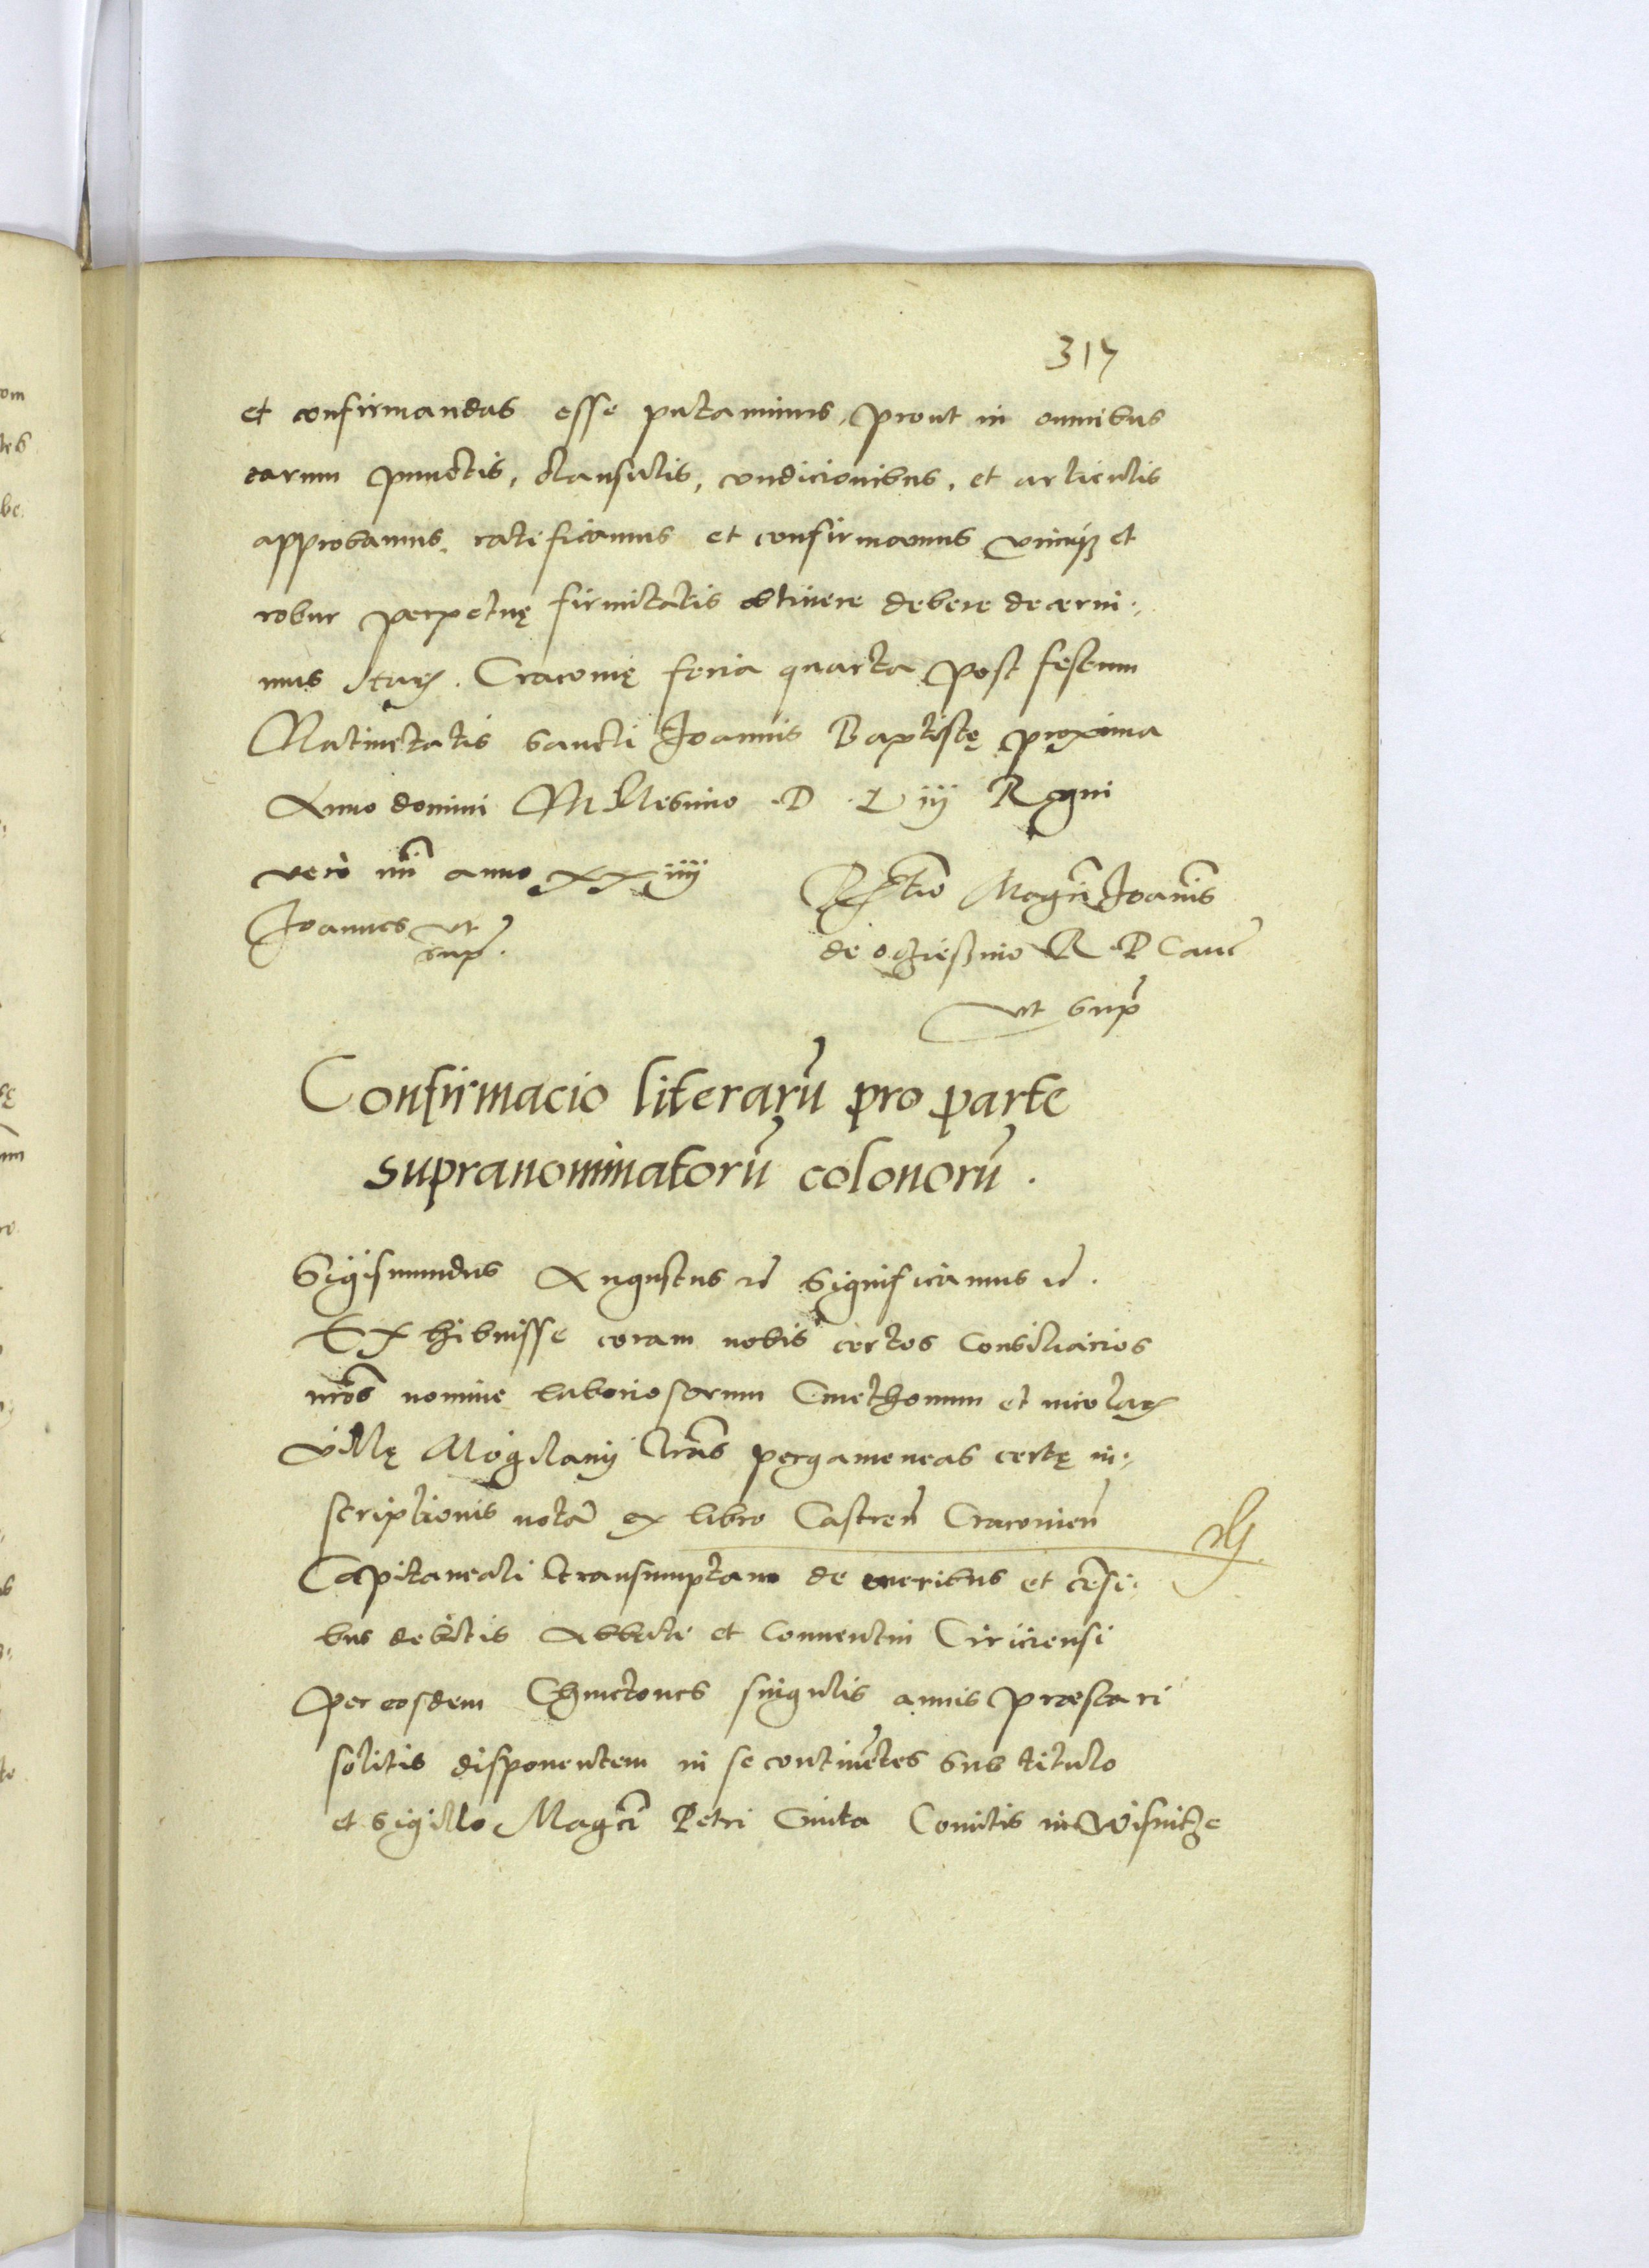 317
et confirmandas esse putauimus, prout in omnibus
earum punctis, clausulis, condicionibus, et articulis
approbamus, ratificamus et confirmamus vimq3 et
robur perpetuę firmitatis obtinere debere decerni:,
mus Cracouię feria quarta post festum
Natiuitatis Sancti Joannis Baptistę proxima
Anno domini Millesimo D L iij Regni
vero nri anno xxiiij
Joannes ut
sup.
Rtio Magci Joannis
de oczieszino R P Canc
ut Sup
Confirmacio literarũ pro parte
supranominatorũ colonorũ.
Sigismundus Augustus Significamus
Exhibuisse coram nobis certos Consiliarios
nros nomine laboriosorum Cmethonum et incolarum
villę Mogilany lras pergameneas certę in:,
scriptionis notã ex libro Castren Cracouien
Capitaneali transumptam de oneribus et cẽsi:
bus debitis Abbati et Conuentui Ciriciensi
per eosdem Chmetones singulis annis praestari
solitis disponentem in se continẽtes Sub titulo
et Sigillo Magci Petri Cmita Comitis in Wisnitze